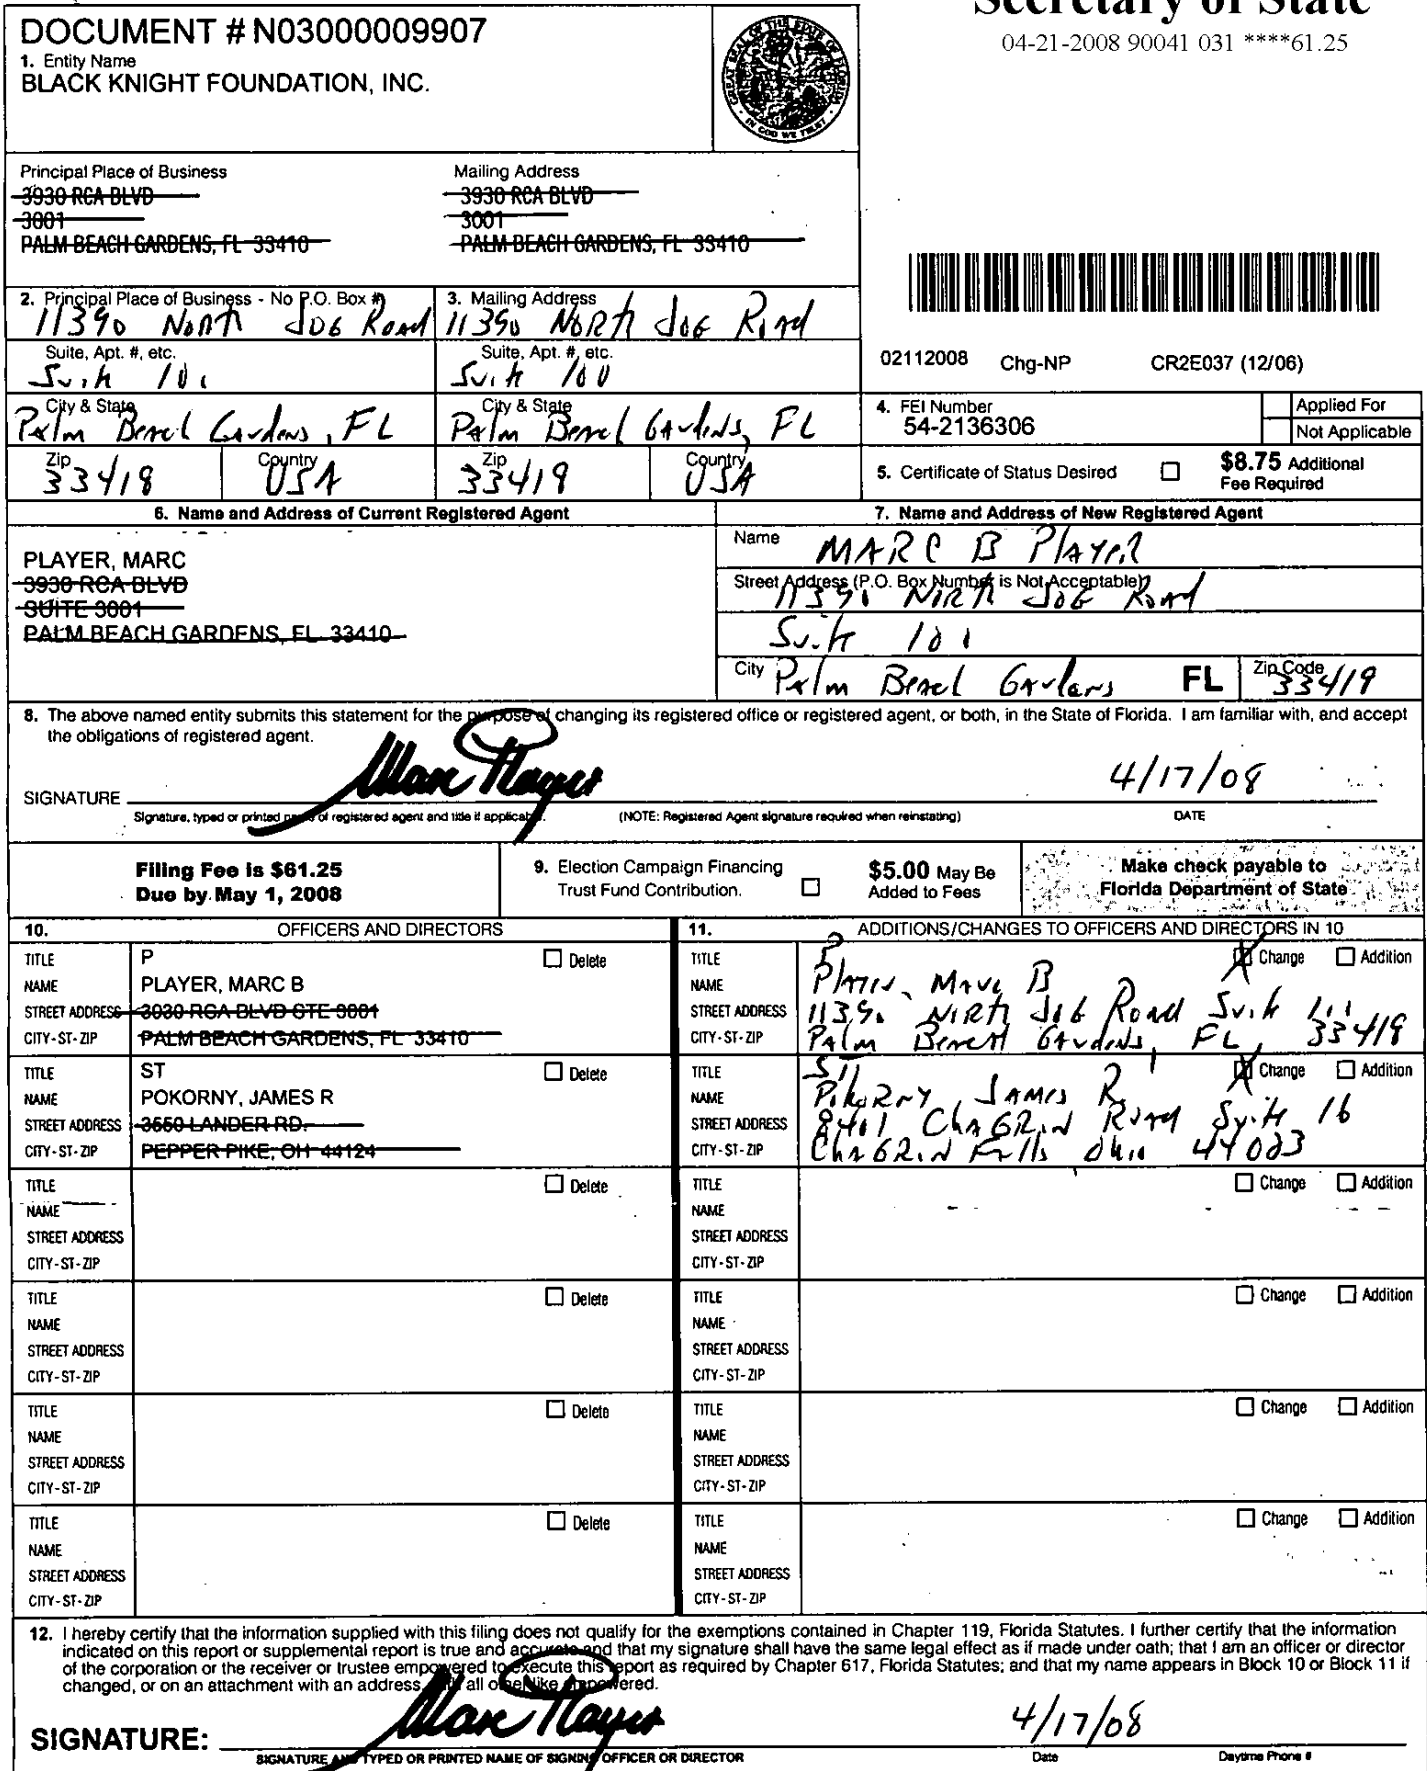 Secretary of State
04-21-2008 90041 031 ****61.25
DOCUMENT # N03000009907
1. Entity Name
BLACK KNIGHT FOUNDATION, INC.
Principal Place of Business
3930 RCA BLVD
3001
PALM BEACH GARDENS, FL 33410
Mailing Address
3930 RCA BLVD
3001
PALM BEACH GARDENS, FL 33410
2. Principal Place of Business - No P.O. Box #
11390 North Jog Road
Suite, Apt. #, etc.
Suite 101
City & State
Palm Beach Gardens, FL
Zip
33418
Country
USA
3. Mailing Address
11390 North Jog Road
Suite, Apt. #, etc.
Suite 100
City & State
Palm Beach Gardens, FL
Zip
33419
Country
USA
02112008 Chg-NP CR2E037 (12/06)
4. FEI Number
54-2136306
Applied For
Not Applicable
5. Certificate of Status Desired
$8.75 Additional
Fee Required
6. Name and Address of Current Registered Agent
PLAYER, MARC
3930 RCA BLVD
SUITE 3001
PALM BEACH GARDENS, FL 33410
7. Name and Address of New Registered Agent
Name MARC B Player
Street Address (P.O. Box Number is Not Acceptable)
11390 North Jog Road
Suite 101
City Palm Beach Gardens FL Zip Code 33419
8. The above named entity submits this statement for the purpose of changing its registered office or registered agent, or both, in the State of Florida. I am familiar with, and accept
the obligations of registered agent.
SIGNATURE Marc Player 4/17/08
Signature, typed or printed name of registered agent and title if applicable. (NOTE: Registered Agent signature required when reinstating) DATE
Filing Fee is $61.25
Due by May 1, 2008
9. Election Campaign Financing
Trust Fund Contribution.
$5.00 May Be
Added to Fees
Make check payable to
Florida Department of State
10. OFFICERS AND DIRECTORS
TITLE P Delete
NAME PLAYER, MARC B
STREET ADDRESS 3930 RCA BLVD STE 3001
CITY-ST-ZIP PALM BEACH GARDENS, FL 33410
TITLE ST Delete
NAME POKORNY, JAMES R
STREET ADDRESS 3550 LANDER RD.
CITY-ST-ZIP PEPPER PIKE, OH 44124
TITLE Delete
NAME
STREET ADDRESS
CITY-ST-ZIP
TITLE Delete
NAME
STREET ADDRESS
CITY-ST-ZIP
TITLE Delete
NAME
STREET ADDRESS
CITY-ST-ZIP
TITLE Delete
NAME
STREET ADDRESS
CITY-ST-ZIP
11. ADDITIONS/CHANGES TO OFFICERS AND DIRECTORS IN 10
TITLE P Change Addition
NAME Player, Marc B
STREET ADDRESS 11390 North Jog Road Suite
CITY-ST-ZIP Palm Beach Gardens, FL, 33418
TITLE ST Change Addition
NAME Pokorny, James R.
STREET ADDRESS 8401 Chagrin Road Suite 16
CITY-ST-ZIP Chagrin Falls Ohio 44023
TITLE Change Addition
NAME
STREET ADDRESS
CITY-ST-ZIP
TITLE Change Addition
NAME
STREET ADDRESS
CITY-ST-ZIP
TITLE Change Addition
NAME
STREET ADDRESS
CITY-ST-ZIP
TITLE Change Addition
NAME
STREET ADDRESS
CITY-ST-ZIP
12. I hereby certify that the information supplied with this filing does not qualify for the exemptions contained in Chapter 119, Florida Statutes. I further certify that the information
indicated on this report or supplemental report is true and accurate and that my signature shall have the same legal effect as if made under oath; that I am an officer or director
of the corporation or the receiver or trustee empowered to execute this report as required by Chapter 617, Florida Statutes; and that my name appears in Block 10 or Block 11 if
changed, or on an attachment with an address, all other like empowered.
SIGNATURE: Marc Player 4/17/08
SIGNATURE AND TYPED OR PRINTED NAME OF SIGNING OFFICER OR DIRECTOR Date Daytime Phone #